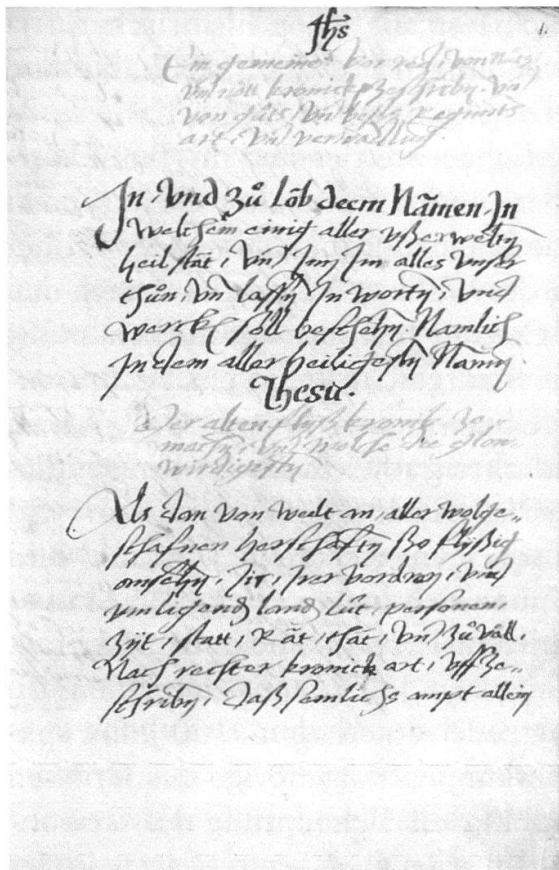 Jhs 1.
Ein gemeine vorred, von nutz
vnd nott kronick zeschriben. vnd
von gůts, vnd böses Regiments
art, vnd verwaltung.
In, Vnd Zů Lob deem Namen, In
Welchem einig aller vßerwelten
heil stät, Vnd Inn Im alles vnser
thůn, vnd lassen In worten, vnd
wercken soll beschehen. Namlich
In dem aller heiligesten Namen
Jhesu.
Der alten flyß kronick ze
machen, vnd welche die glow
wirdigesten
Als dan von welt an, aller wolge-
schafnen herschaften so flyßig
ansehen, ir, irer vordren, vnd
vmligender land, lüt, personen
Zyt, statt, Rät, that, vnd zůväll,
Nach rechter kronick art, vff ze-
schriben, daß semlichs ampt allein